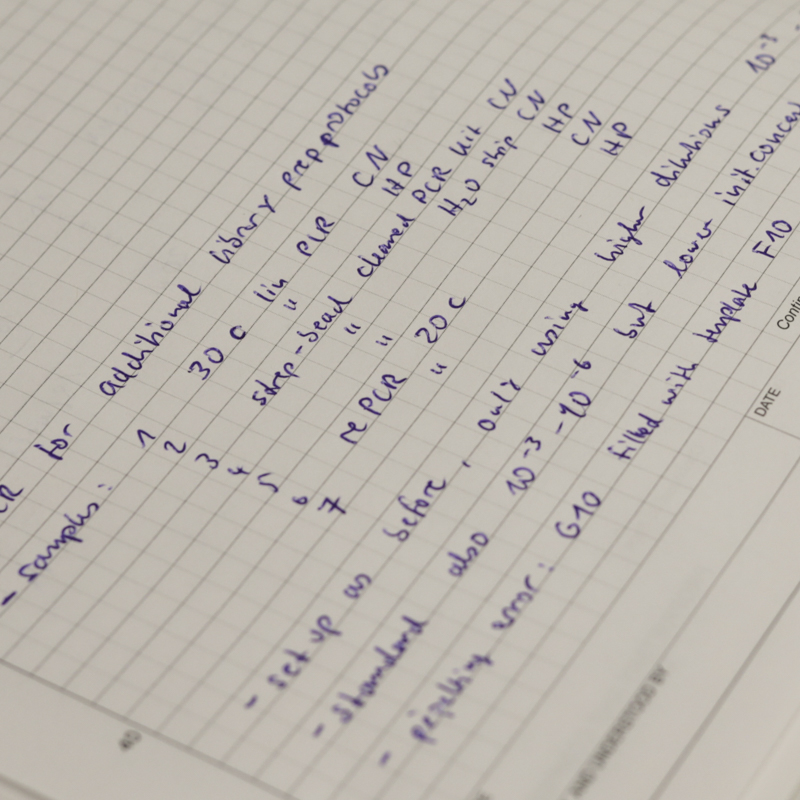 CR for additional library prep protocols
- samples: 1 30 c lin PCR CN
2 " HP
3 strep-bead cleaned PCR kit CN
4 " H2O strip CN
5 " HP
6 rePCR 20 c CN
7 " HP
- set up as before, only using higher dilutions 10-1
- standard also 10-3 - 10-6 but lower init. concen
- pipetting error: G10 filled with template F10
40
Contin
DATE
AND UNDERSTOOD BY